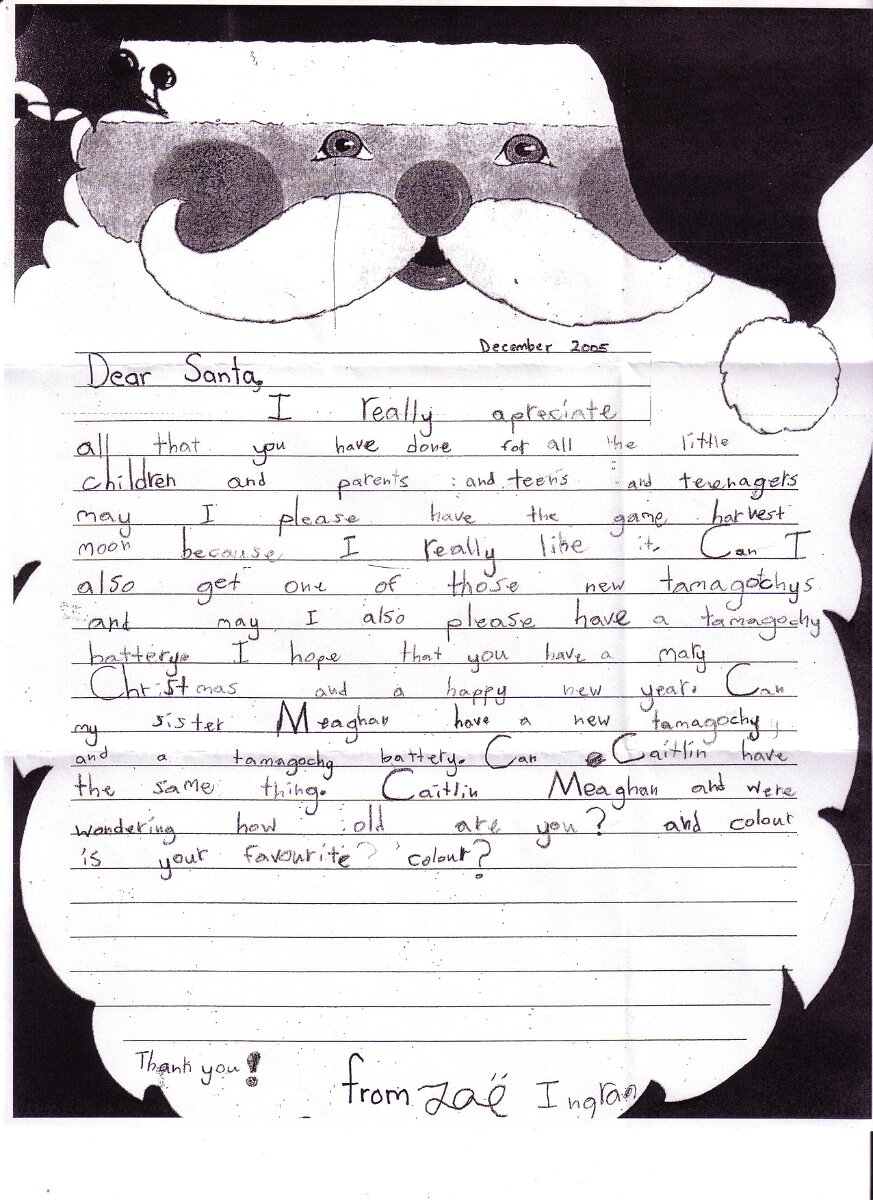 December 2005
Dear Santa,
I really apreciate
all that you have done for all the little
children and parents and teens and teenagers
may I please have the game harvest
moon because I really like it. Can I
also get one of those new tamagotchys
and may I also please have a tamagochy
battery. I hope that you have a mary
Christmas and a happy new year. Can
my sister Meaghan have a new tamagochy
and a tamagochy battery. Can Caitlin have
the same thing. Caitlin Meaghan and were
wondering how old are you? and colour
is your favourite? colour?
Thank you!
from Zoë Ingram